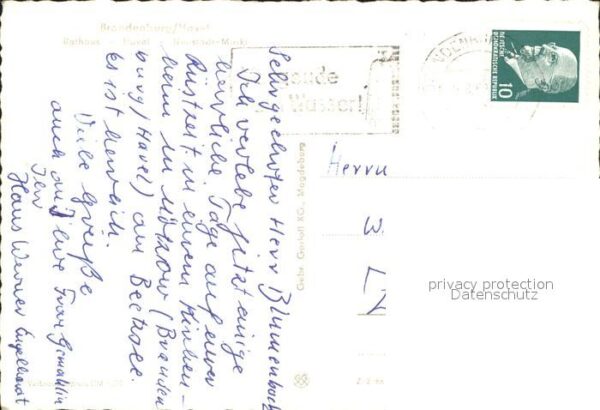 Brandenburg/Havel
Rathaus - Havel - Neustädt. Markt
Sehr geehrter Herr Blumenbach
Ich verlebe jetzt einige
herrliche Tage auf einer
Rüstzeit in einem Kirchen-
heim in Mötzow (Branden
burg/Havel) am Beetzsee.
Es ist herrlich.
Viele Grüße
auch an Ihre Frau Gemahlin
Ihr
Hans Werner Engelhardt
Gebr. Garloff KG., Magdeburg
DEUTSCHE
DEMOKRATISCHE REPUBLIK
10
Herrn
W
privacy protection
Datenschutz